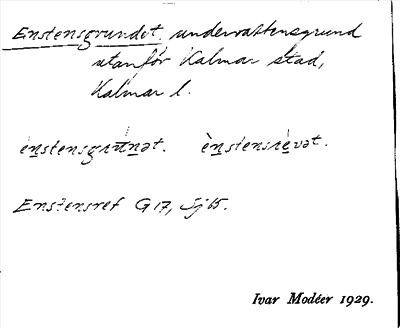 Enstensgrundet. undervattensgrund
utanför Kalmar stad,
Kalmar l.
ènstensgrúnət. ènstensrévət.
Enstensref G 17, Sj 65.
Ivar Modéer 1929.